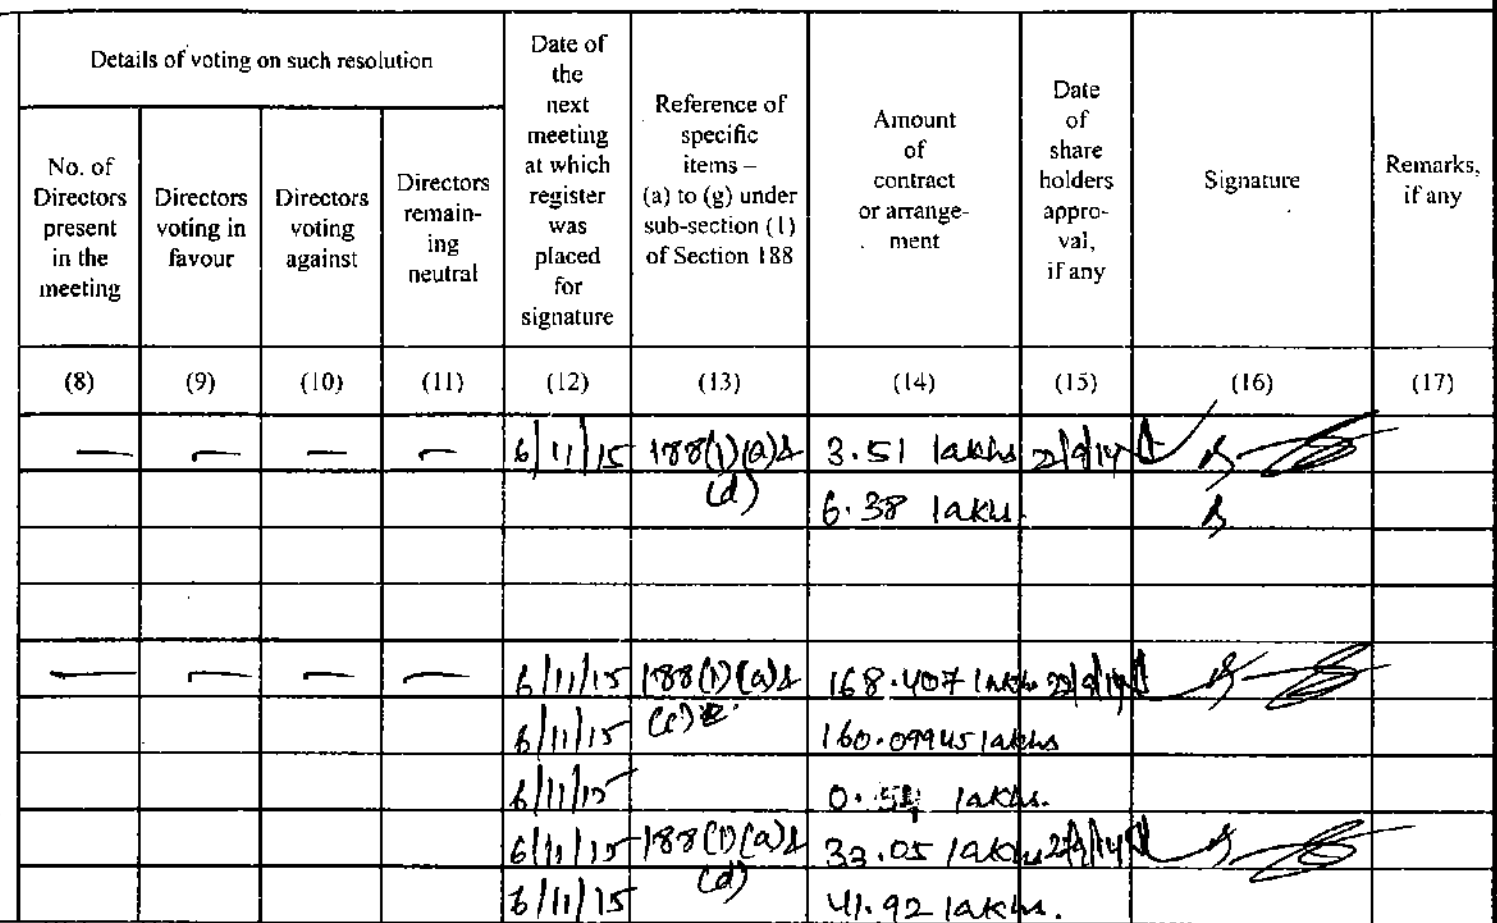 Details of voting on such resolution
Date of
the
next
meeting
at which
register
was
placed
for
signature
Reference of
specific
items –
(a) to (g) under
sub-section (1)
of Section 188
Amount
of
contract
or arrange-
ment
Date
of
share
holders
appro-
val,
if any
Signature
Remarks,
if any
No. of
Directors
present
in the
meeting
Directors
voting in
favour
Directors
voting
against
Directors
remain-
ing
neutral
(8) (9) (10) (11) (12) (13) (14) (15) (16) (17)
— — — — 6/11/15 188(1)(a)& 3.51 lakhs 22/9/14
(d) 6.38 lakh
— — — — 6/11/15 188(1)(a)& 168.407 lakhs 22/9/14
6/11/15 160.09945 lakhs
6/11/15 lakhs.
6/11/15 188(1)(a)& 33.05 lakhs 22/9/14
(d)
6/11/15 41.92 lakhs.